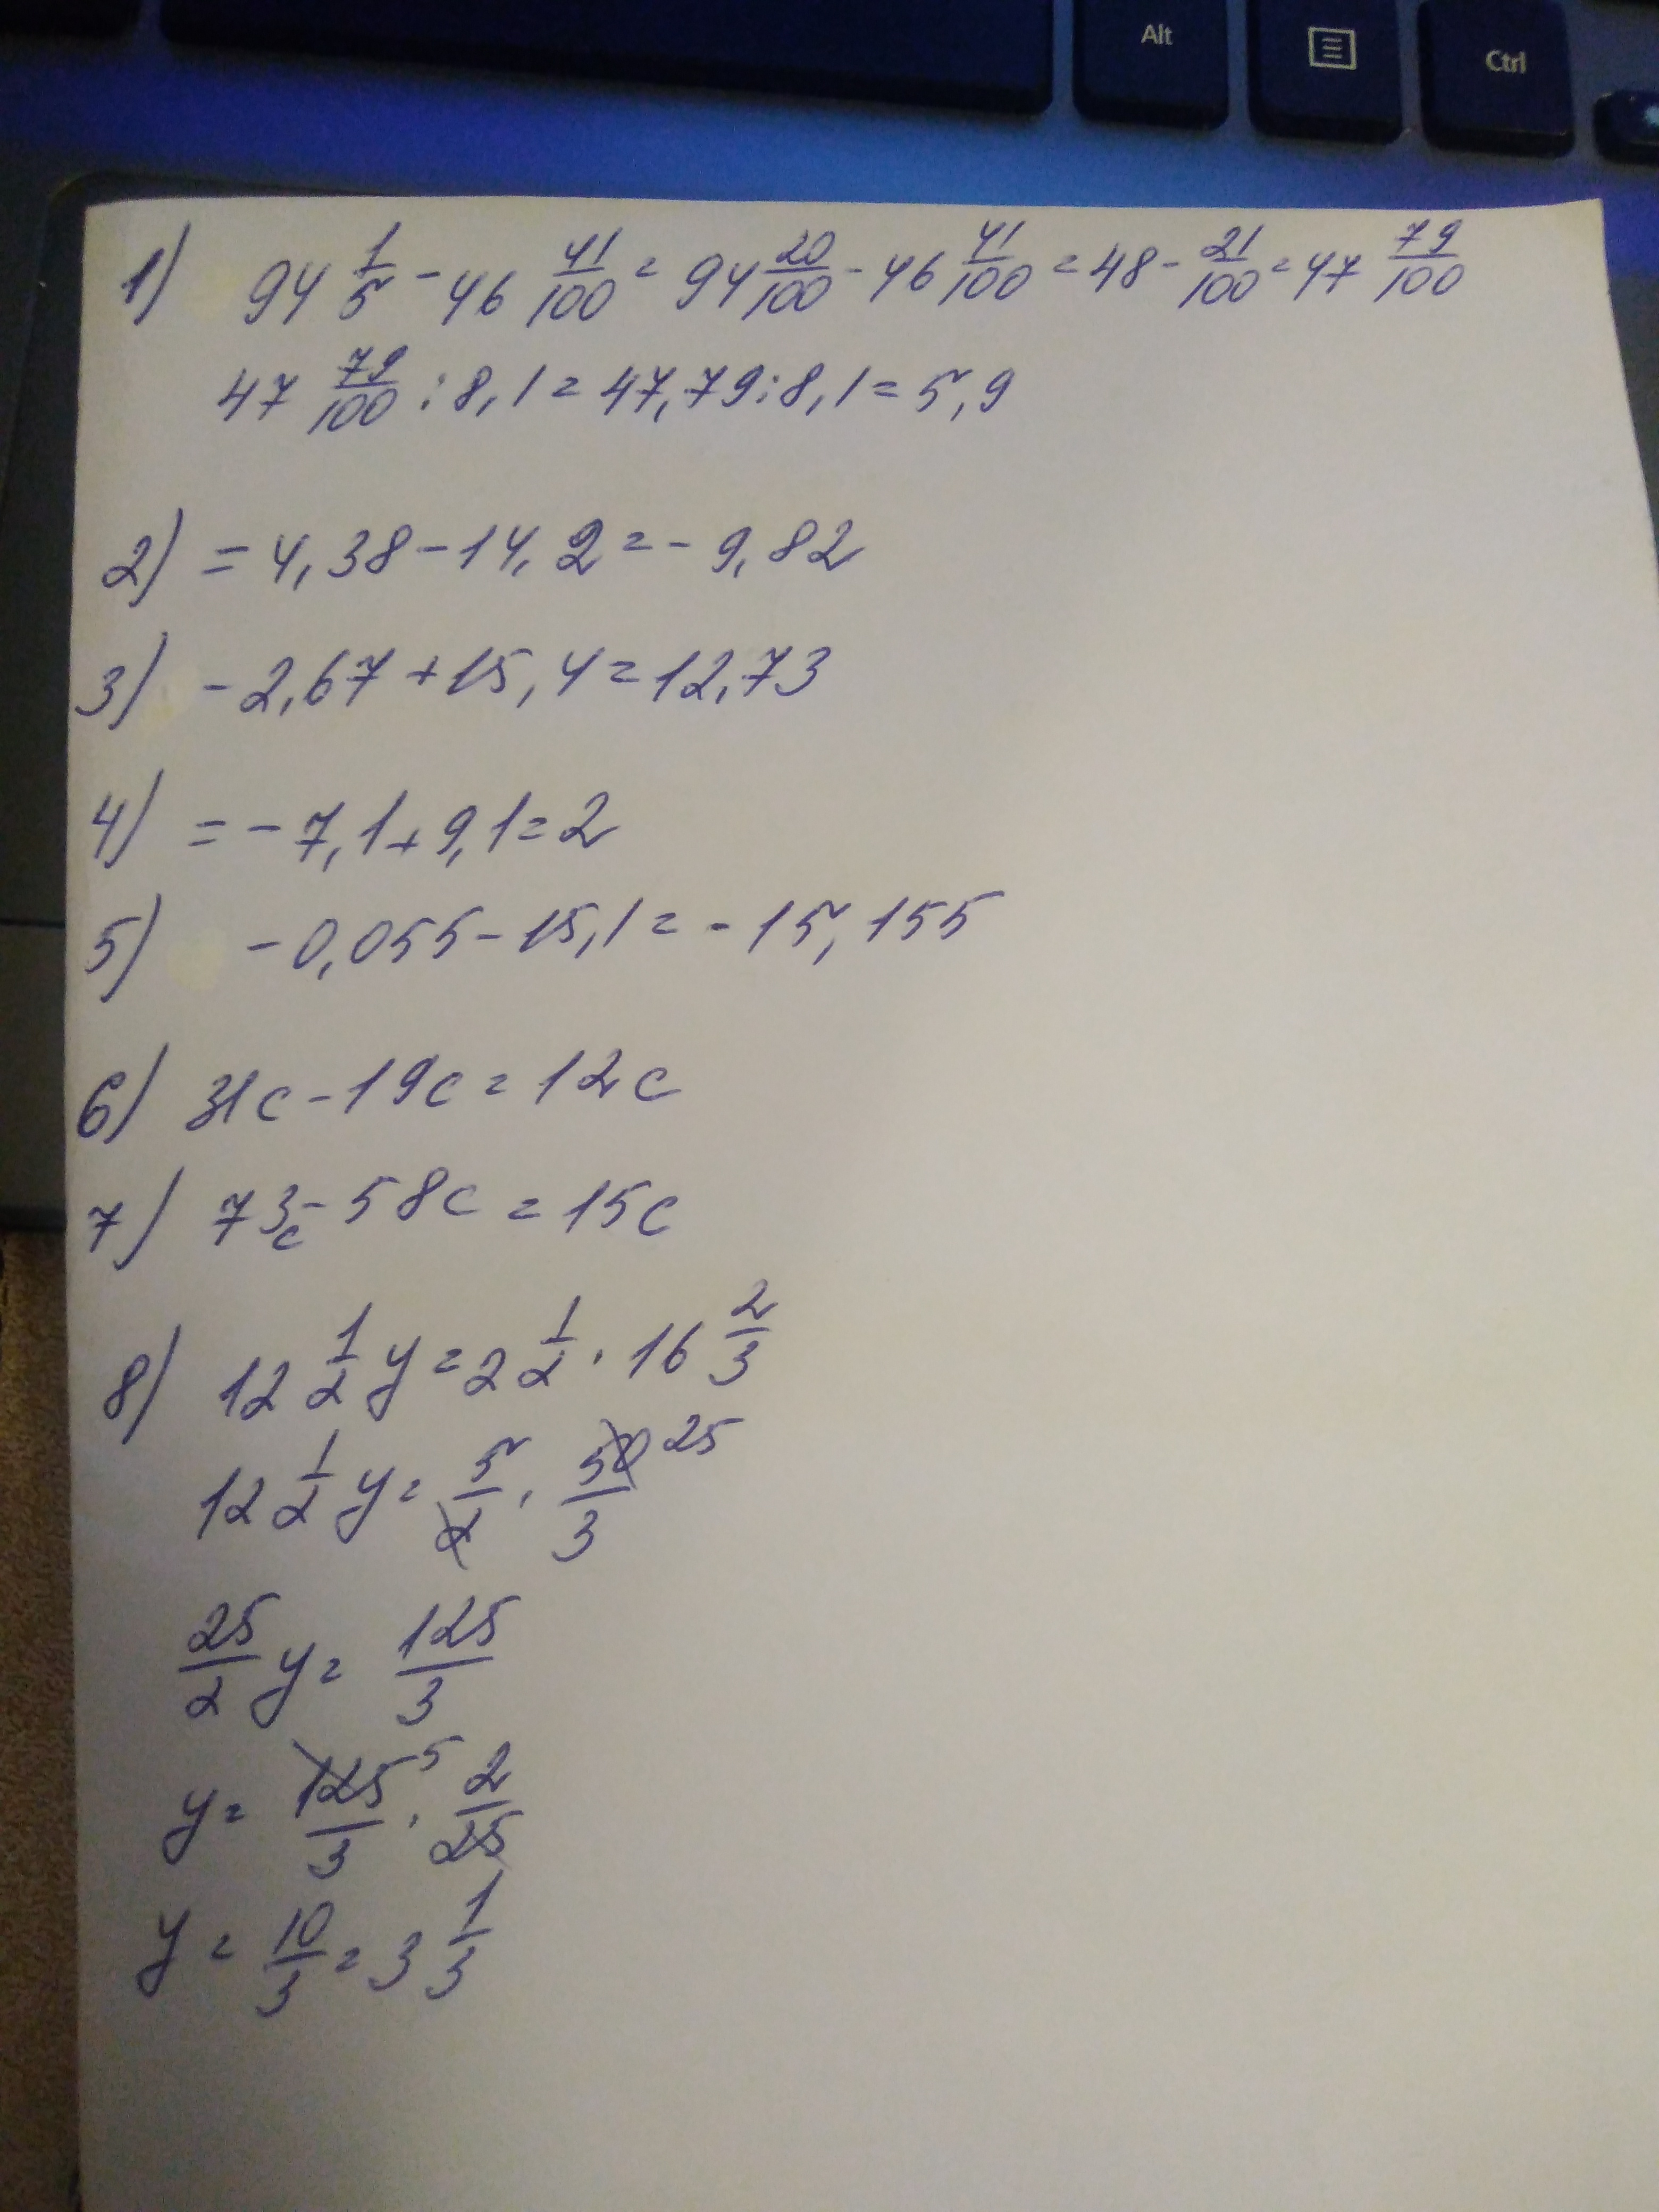 Alt
Ctrl
1) 94 1/5 - 46 41/100 = 94 20/100 - 46 41/100 = 48 - 21/100 = 47 79/100
47 79/100 : 8,1 = 47,79 : 8,1 = 5,9
2) = 4,38 - 14,2 = - 9,82
3) - 2,67 + 15,4 = 12,73
4) = - 7,1 + 9,1 = 2
5) - 0,055 - 15,1 = - 15,155
6) 31c - 19c = 12c
7) 73c - 58c = 15c
8) 12 1/2 y = 2 1/2 · 16 2/3
12 1/2 y = 5/2 · 50/3 25
25/2 y = 125/3
y = 125/3 5 · 2/25
y = 10/3 = 3 1/3